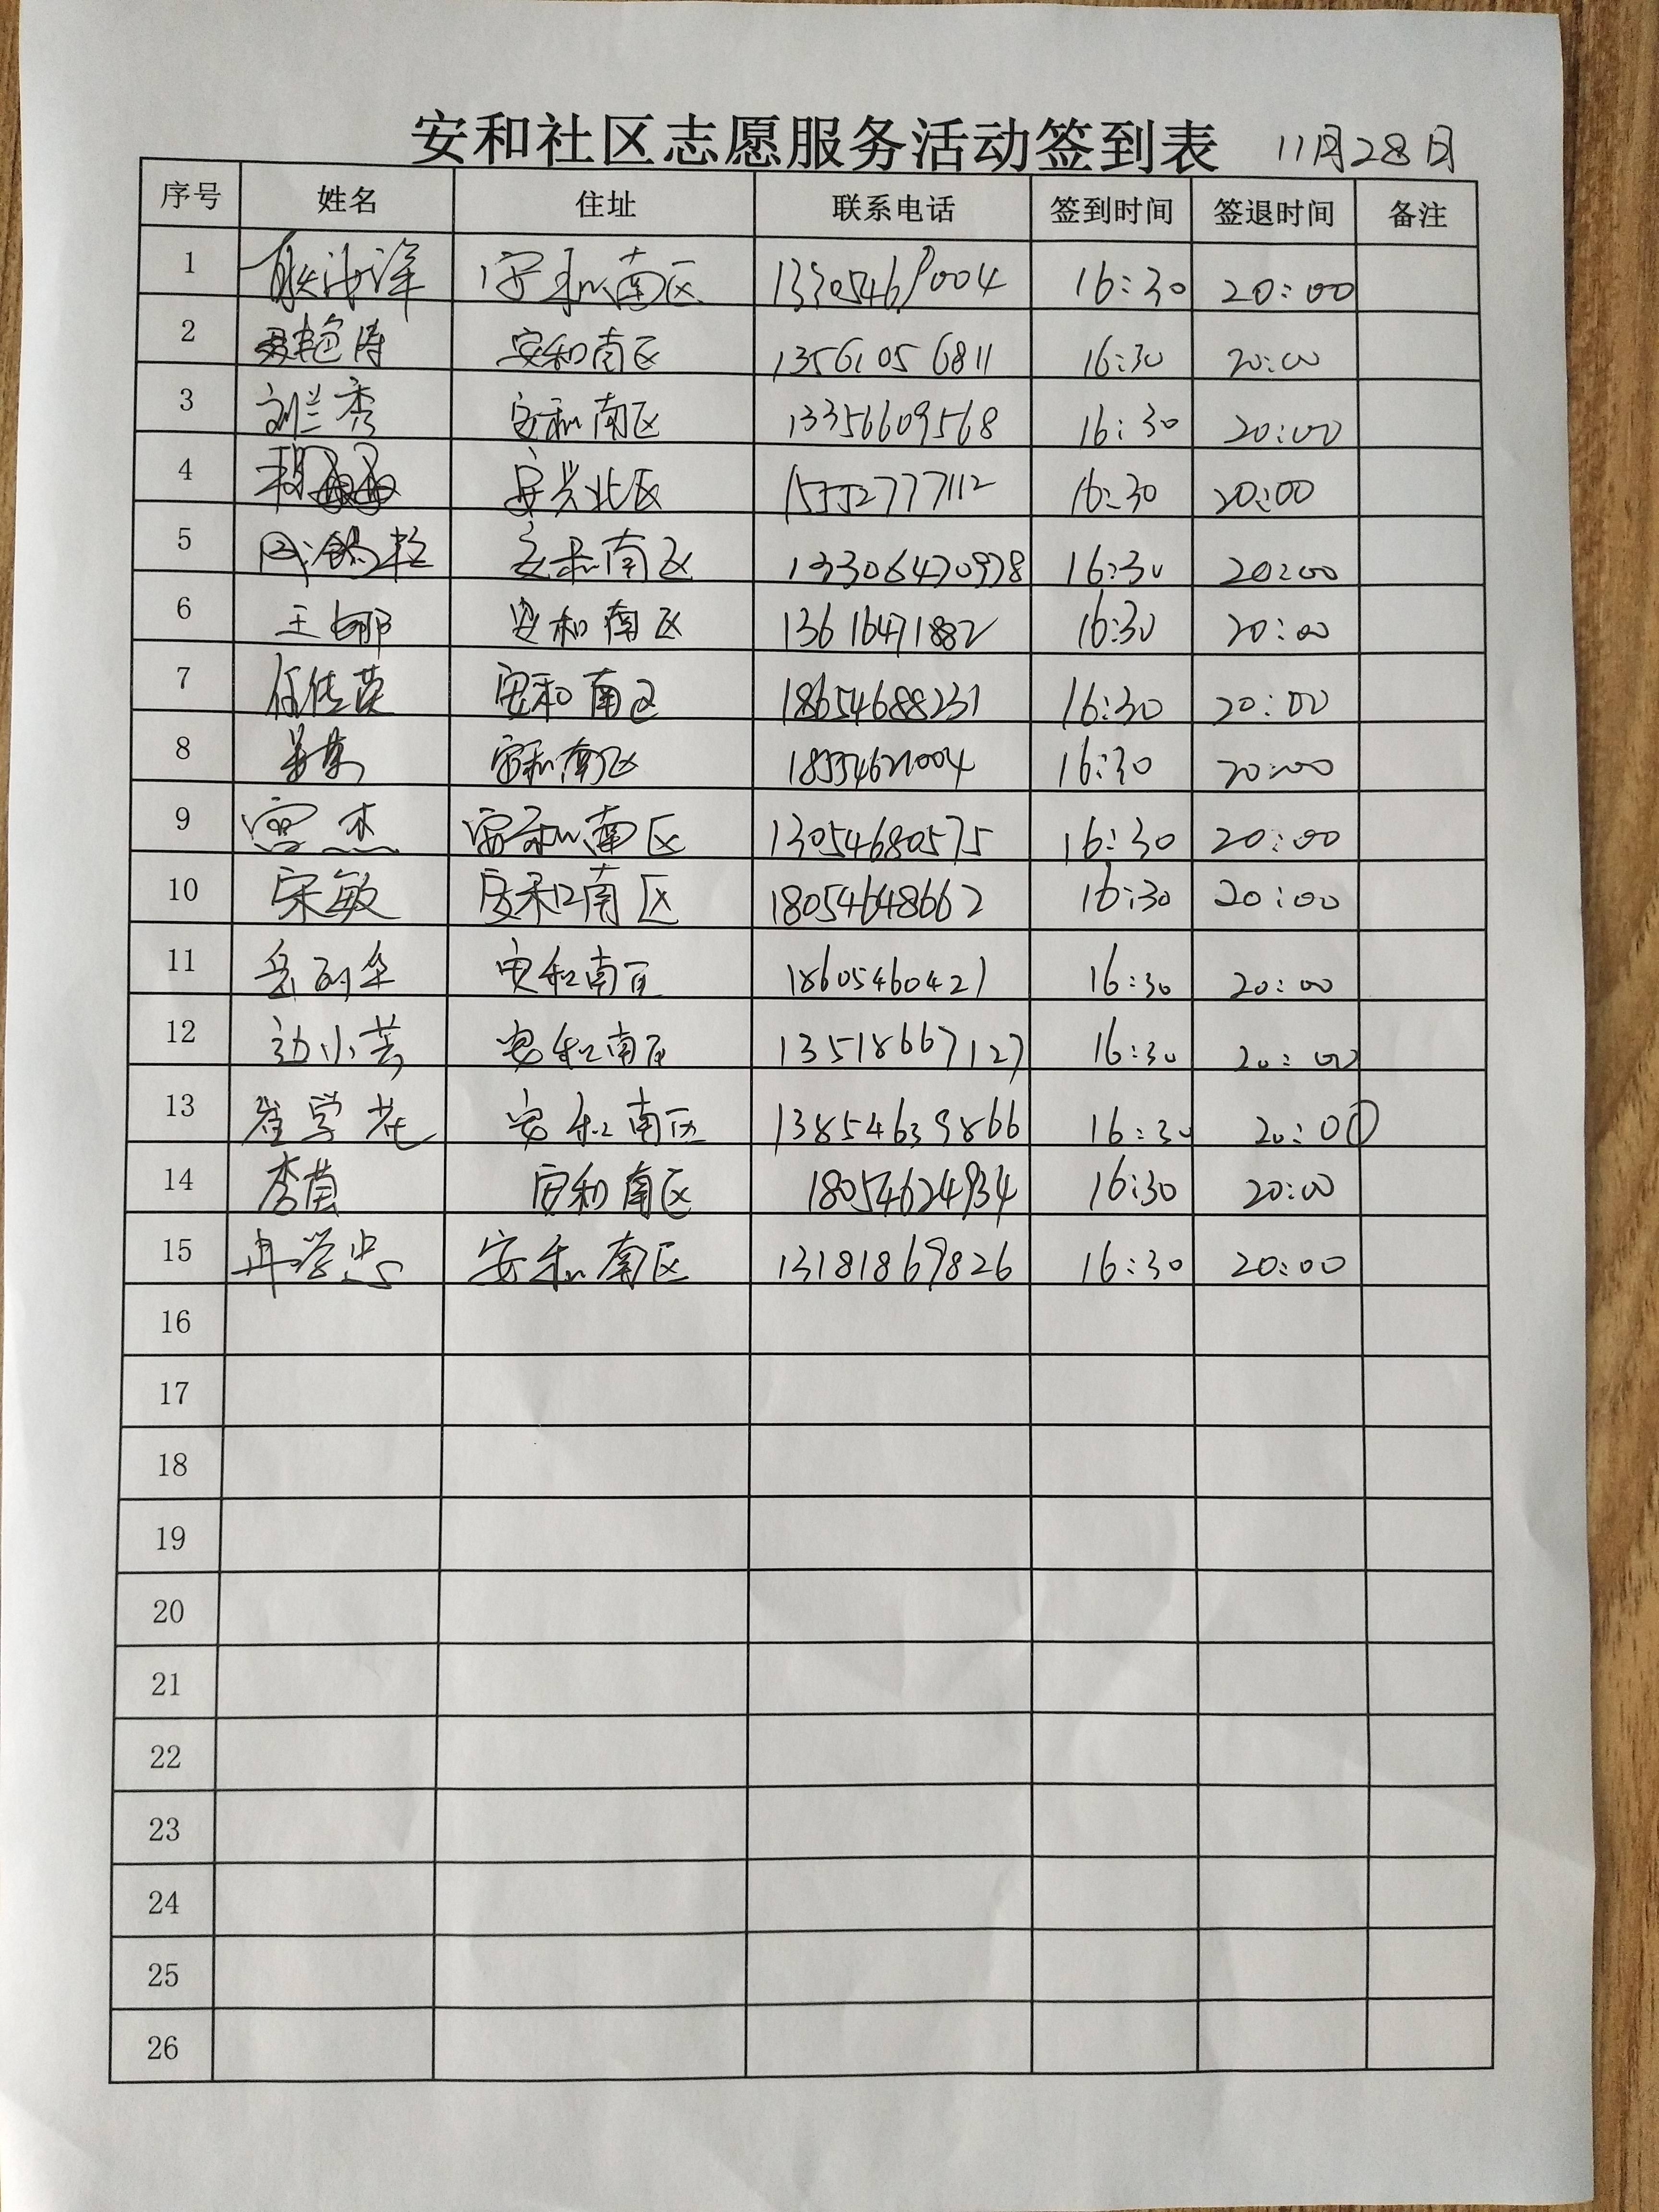 安和社区志愿服务活动签到表 11月28日
序号 姓名 住址 联系电话 签到时间 签退时间 备注
1 安和南区 13305469004 16:30 20:00
2 艳涛 安和南区 13561056811 16:30 20:00
3 刘兰秀 安和南区 13356609568 16:30 20:00
4 安兴北区 15552777112 16:30 20:00
5 安和南区 16:30 20:00
6 王娜 安和南区 13616471882 16:30 20:00
7 任佳英 安和南区 18654688231 16:30 20:00
8 安和南区 16:30 20:00
9 宫杰 安和南区 13054680575 16:30 20:00
10 宋敏 安和南区 18054648662 16:30 20:00
11 安和南区 18605460421 16:30 20:00
12 边小芸 安和南区 13518667127 16:30 20:00
13 崔学花 安和南区 13854639866 16:30 20:00
14 李苗 安和南区 18054624934 16:30 20:00
15 冉学忠 安和南区 13181869826 16:30 20:00
16
17
18
19
20
21
22
23
24
25
26